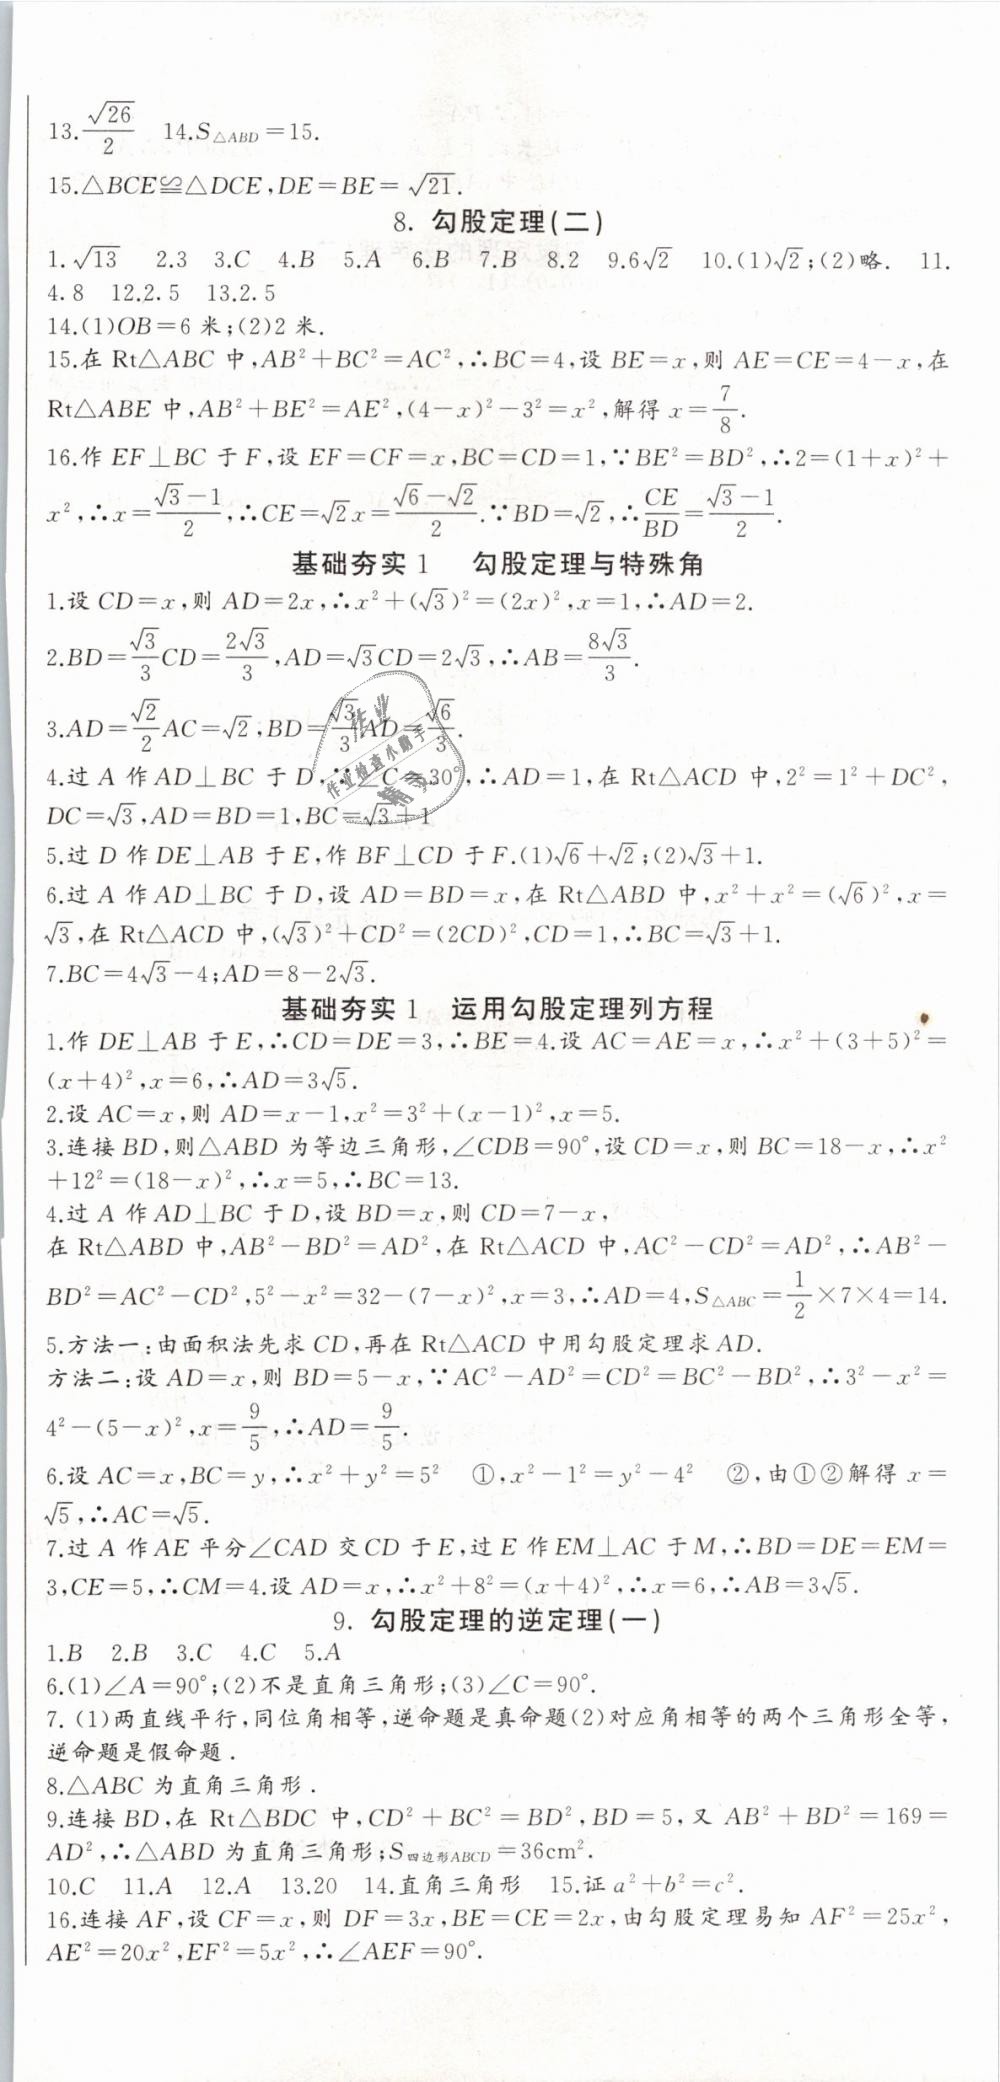 13.√26/2 14.S△ABD=15.
15.△BCE≌△DCE,DE=BE=√21.
8. 勾股定理(二)
1.√13 2.3 3.C 4.B 5.A 6.B 7.B 8.2 9.6√2 10.(1)√2;(2)略. 11.
4.8 12.2.5 13.2.5
14.(1)OB=6 米;(2)2 米.
15.在 Rt△ABC 中,AB²+BC²=AC²,∴BC=4,设 BE=x,则 AE=CE=4-x,在
Rt△ABE 中,AB²+BE²=AE²,(4-x)²-3²=x²,解得 x=7/8.
16.作 EF⊥BC 于 F,设 EF=CF=x,BC=CD=1,∵BE²=BD²,∴2=(1+x)²+
x²,∴x=(√3-1)/2,∴CE=√2x=(√6-√2)/2.∵BD=√2,∴CE/BD=(√3-1)/2.
基础夯实 1 勾股定理与特殊角
1.设 CD=x,则 AD=2x,∴x²+(√3)²=(2x)²,x=1,∴AD=2.
2.BD=√3/3CD=2√3/3,AD=√3CD=2√3,∴AB=8√3/3.
3.AD=√2/2AC=√2,BD=√3/3AD=√6/3.
4.过 A 作 AD⊥BC 于 D,∵∠C=30°,∴AD=1,在 Rt△ACD 中,2²=1²+DC²,
DC=√3,AD=BD=1,BC=√3+1
5.过 D 作 DE⊥AB 于 E,作 BF⊥CD 于 F.(1)√6+√2;(2)√3+1.
6.过 A 作 AD⊥BC 于 D,设 AD=BD=x,在 Rt△ABD 中,x²+x²=(√6)²,x=
√3,在 Rt△ACD 中,(√3)²+CD²=(2CD)²,CD=1,∴BC=√3+1.
7.BC=4√3-4;AD=8-2√3.
基础夯实 1 运用勾股定理列方程
1.作 DE⊥AB 于 E,∴CD=DE=3,∴BE=4.设 AC=AE=x,∴x²+(3+5)²=
(x+4)²,x=6,∴AD=3√5.
2.设 AC=x,则 AD=x-1,x²=3²+(x-1)²,x=5.
3.连接 BD,则△ABD 为等边三角形,∠CDB=90°,设 CD=x,则 BC=18-x,∴x²
+12²=(18-x)²,∴x=5,∴BC=13.
4.过 A 作 AD⊥BC 于 D,设 BD=x,则 CD=7-x,
在 Rt△ABD 中,AB²-BD²=AD²,在 Rt△ACD 中,AC²-CD²=AD²,∴AB²-
BD²=AC²-CD²,5²-x²=32-(7-x)²,x=3,∴AD=4,S△ABC=1/2×7×4=14.
5.方法一:由面积法先求 CD,再在 Rt△ACD 中用勾股定理求 AD.
方法二:设 AD=x,则 BD=5-x,∵AC²-AD²=CD²=BC²-BD²,∴3²-x²=
4²-(5-x)²,x=9/5,∴AD=9/5.
6.设 AC=x,BC=y,∴x²+y²=5² ①,x²-1²=y²-4² ②,由①②解得 x=
√5,∴AC=√5.
7.过 A 作 AE 平分∠CAD 交 CD 于 E,过 E 作 EM⊥AC 于 M,∴BD=DE=EM=
3,CE=5,∴CM=4.设 AD=x,∴x²+8²=(x+4)²,∴x=6,∴AB=3√5.
9. 勾股定理的逆定理(一)
1.B 2.B 3.C 4.C 5.A
6.(1)∠A=90°;(2)不是直角三角形;(3)∠C=90°.
7. (1)两直线平行,同位角相等,逆命题是真命题(2)对应角相等的两个三角形全等,
逆命题是假命题.
8.△ABC 为直角三角形.
9.连接 BD,在 Rt△BDC 中,CD²+BC²=BD²,BD=5,又 AB²+BD²=169=
AD²,∴△ABD 为直角三角形;S四边形ABCD=36cm².
10.C 11.A 12.A 13.20 14.直角三角形 15.证 a²+b²=c².
16.连接 AF,设 CF=x,则 DF=3x,BE=CE=2x,由勾股定理易知 AF²=25x²,
AE²=20x²,EF²=5x²,∴∠AEF=90°.
作业
作业检查小助手